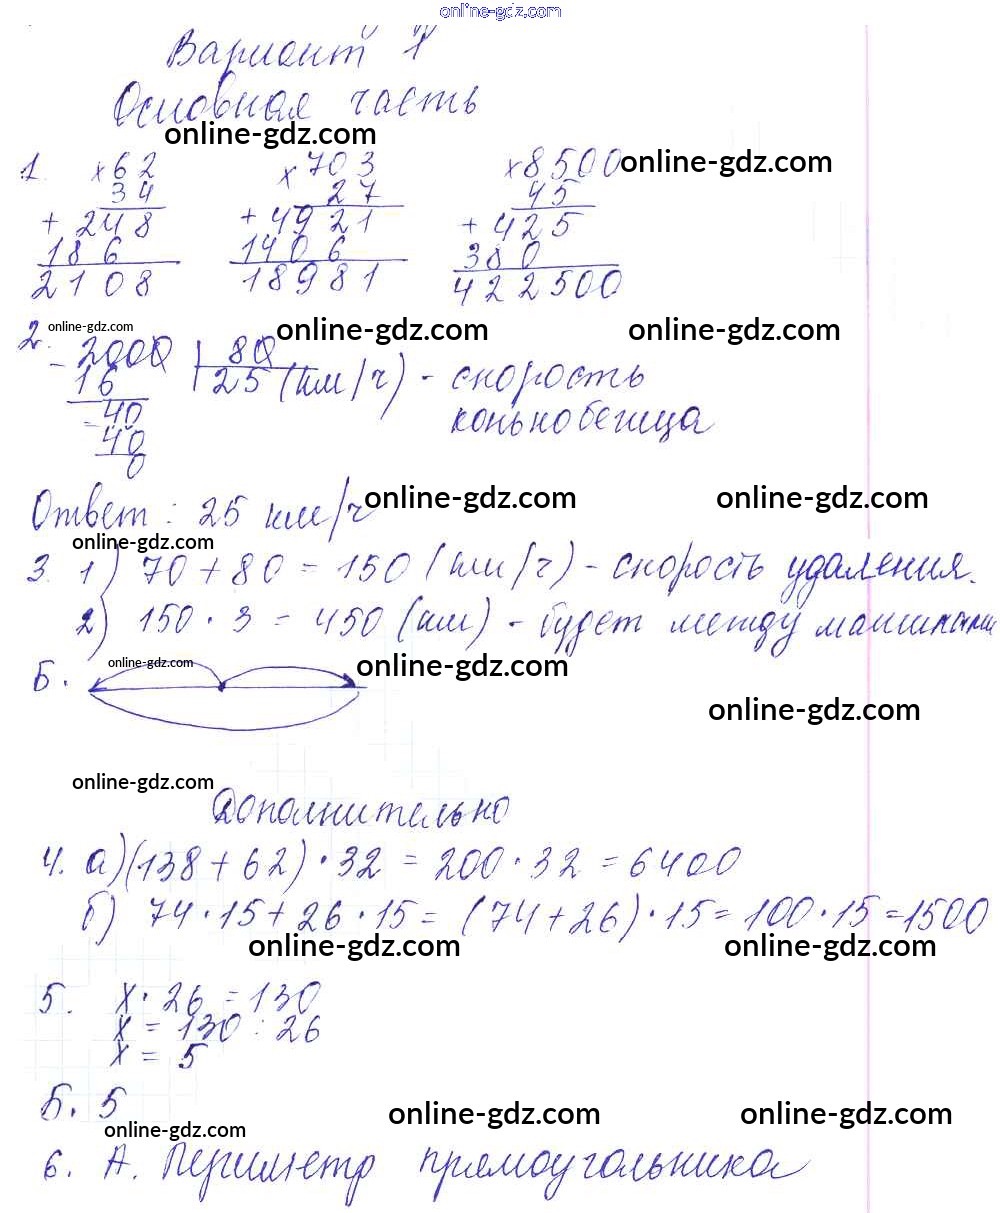 online-gdz.com
Вариант 1
Основная часть
online-gdz.com
1. ×62 ×703 ×8500 online-gdz.com
34 27 45
+ 248 + 4921 + 425
186 1406 380
2108 18981 422500
2. online-gdz.com online-gdz.com online-gdz.com
- 2000 | 80
16 25 (км/ч) - скорость
- 40 конькобежца
40
0
online-gdz.com online-gdz.com
Ответ: 25 км/ч
online-gdz.com
3. 1) 70 + 80 = 150 (км/ч) - скорость удаления.
2) 150 · 3 = 450 (км) - будет между машинами
Б. online-gdz.com online-gdz.com
online-gdz.com
online-gdz.com
Дополнительно
4. а) (138 + 62) · 32 = 200 · 32 = 6400
б) 74 · 15 + 26 · 15 = (74 + 26) · 15 = 100 · 15 = 1500
online-gdz.com online-gdz.com
5. х · 26 = 130
х = 130 : 26
х = 5
Б. 5
online-gdz.com online-gdz.com
online-gdz.com
6. А. Периметр прямоугольника